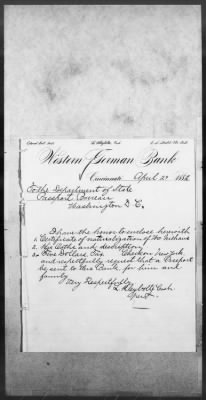 Western German Bank
Cincinnati April 27 1882
To the Department of State
Passport Bureau
Washington D. C.
I have the honor to enclose herewith
1. Certificate of naturalization of
2. His Oath and description
3. Five Dollars Tax Check on New York
and respectfully request that a Passport
be sent to this Bank, for him and
family
Very Respectfully
Cash